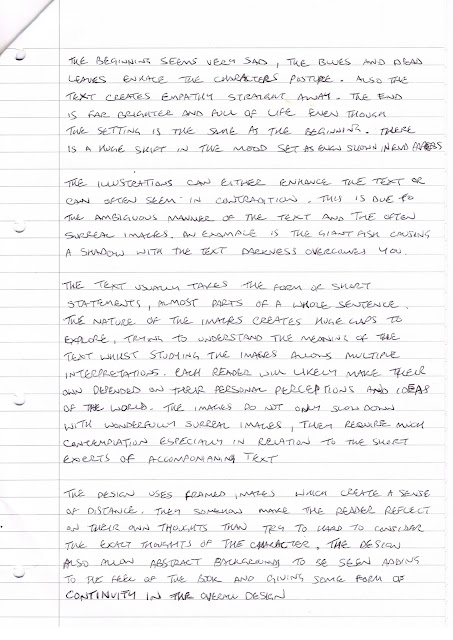 THE BEGINNING SEEMS VERY SAD, THE BLUES AND DEAD
LEAVES ENHACE THE CHARACTERS POSTURE. ALSO THE
TEXT CREATES EMPATHY STRAIGHT AWAY. THE END
IS FAR BRIGHTER AND FULL OF LIFE EVEN THOUGH
THE SETTING IS THE SAME AS THE BEGINNING. THERE
IS A HUGE SHIFT IN THE MOOD SET AS EVEN SHOWN IN END PAPERS
THE ILLUSTRATIONS CAN EITHER ENHANCE THE TEXT OR
CAN OFTEN SEEM IN CONTRADITION. THIS IS DUE TO
THE AMBIGUOUS MANNER OF THE TEXT AND THE OFTEN
SURREAL IMAGES. AN EXAMPLE IS THE GIANT FISH CAUSING
A SHADOW WITH THE TEXT DARKNESS OVERCOMES YOU.
THE TEXT USUALLY TAKES THE FORM OF SHORT
STATEMENTS, ALMOST PARTS OF A WHOLE SENTENCE.
THE NATURE OF THE IMAGES CREATES HUGE GAPS TO
EXPLORE, TRYING TO UNDERSTAND THE MEANING OF THE
TEXT WHILST STUDYING THE IMAGES ALLOWS MULTIPLE
INTERPRETATIONS. EACH READER WILL LIKELY MAKE THEIR
OWN DEPENDED ON THEIR PERSONAL PERCEPTIONS AND IDEAS
OF THE WORLD. THE IMAGES DO NOT ONLY SLOW DOWN
WITH WONDERFULLY SURREAL IMAGES, THEY REQUIRE MUCH
CONTEMPLATION ESPECIALLY IN RELATION TO THE SHORT
EXCERTS OF ACCOMPONAING TEXT
THE DESIGN USES FRAMED IMAGES WHICH CREATE A SENSE
OF DISTANCE. THEY SOMEHOW MAKE THE READER REFLECT
ON THEIR OWN THOUGHTS THAN TRY TO HARD TO CONSIDER
THE EXACT THOUGHTS OF THE CHARACTER. THE DESIGN
ALSO ALLOW ABSTRACT BACKGROUND TO BE SEEN ADDING
TO THE FEEL OF THE BOOK AND GIVING SOME FORM OF
CONTINUITY IN THE OVERALL DESIGN